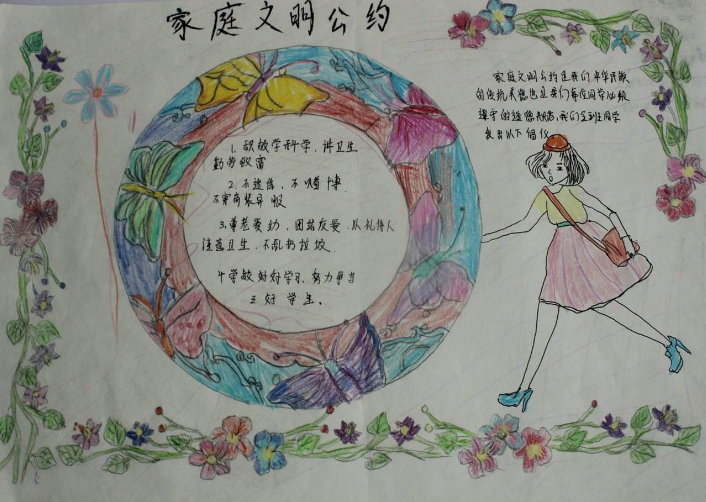 家庭文明公约
家庭文明公约是我们中华民族
的传统美德也是我们每位同学必须
遵守的道德规范,我们
以下倡仪
1、积极学科学、讲卫生
勤劳致富
2、不迷信、不喝 博
不穿奇装异服
3、尊老爱幼、团结友爱、以礼待人
注意卫生、不乱扔垃圾、
4学校好好学习、努力争当
三好学生。